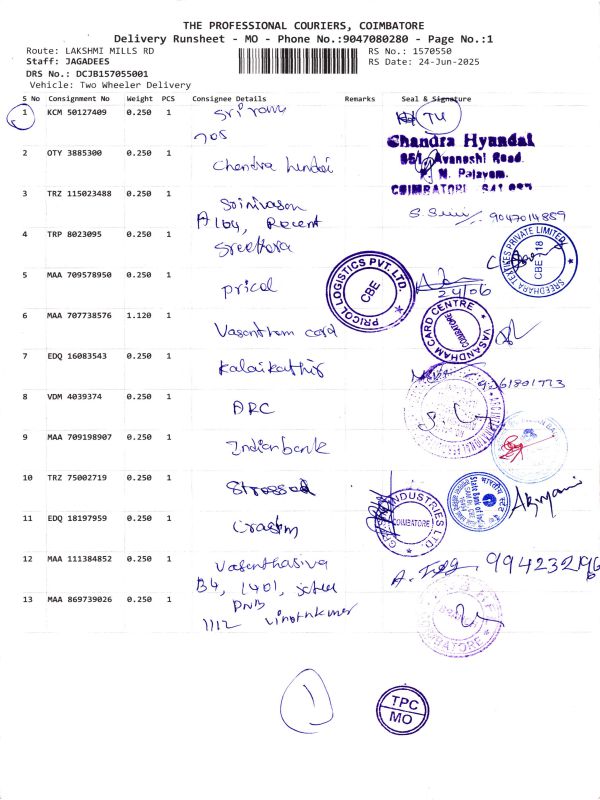 THE PROFESSIONAL COURIERS, COIMBATORE
Delivery Runsheet - MO - Phone No.:9047080280 - Page No.:1
Route: LAKSHMI MILLS RD RS No.: 1570550
Staff: JAGADEES RS Date: 24-Jun-2025
DRS No.: DCJB157055001
Vehicle: Two Wheeler Delivery
S No Consignment No Weight PCS Consignee Details Remarks Seal & Signature
1 KCM 50127409 0.250 1 Sri ram
705
Chandra Hyundai
Avanashi Road.
N. Palayam.
2 OTY 3885300 0.250 1 Chendra hundai
3 TRZ 115023488 0.250 1 Srinivason 9047014889
A 164, Recent
4 TRP 8023095 0.250 1 Sreethara
SREEDHARA TEXTILES PRIVATE LIMITED
CBE - 18
5 MAA 709578950 0.250 1 pricol
PRICOL LOGISTICS PVT. LTD.
CBE
24/06
6 MAA 707738576 1.120 1 Vasantham card
VASANDHAM CARD CENTRE
COIMBATORE
7 EDQ 16083543 0.250 1 Kalaikathir
8 VDM 4039374 0.250 1 ARC
9 MAA 709198907 0.250 1 Indian bank
10 TRZ 75002719 0.250 1
State Bank of India
11 EDQ 18197959 0.250 1
INDUSTRIES LTD.
COIMBATORE
12 MAA 111384852 0.250 1 Vasenthasiva
B4, 1401,
13 MAA 869739026 0.250 1 DNB
1112 Vinothkumar
COIMBATORE
1
TPC
MO